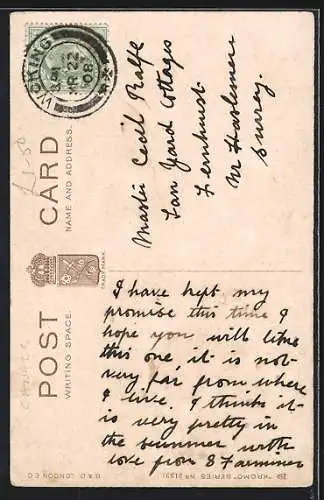 WOKING
MR 22
08
POST CARD
WRITING SPACE.
NAME AND ADDRESS.
TRADE MARK
Cecil Rolfe
Tan Yard Cottages
Fernhurst
Nr Haslemere
Surrey.
£1-50
I have kept my
promise this time I
hope you will like
this one it is not
very far from where
I live. I thinks it
is very pretty in
the summer with
love from S Farminer
B & D. LONDON E.C.
"KROMO" SERIES No